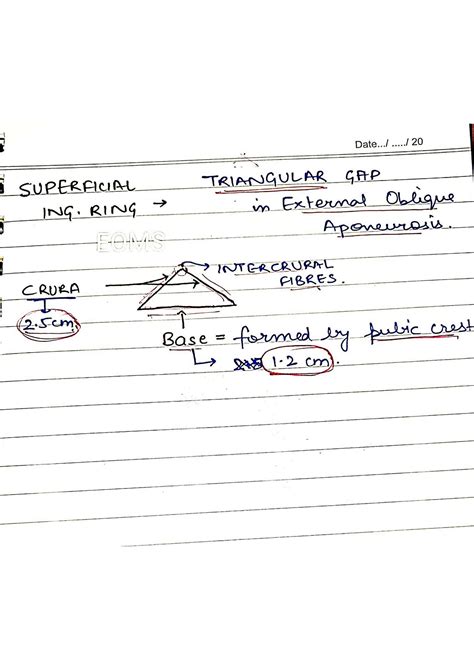 Date.../ ...../ 20
SUPERFICIAL
ING. RING →
TRIANGULAR GAP
in External Oblique
Aponeurosis.
EOMS
INTERCRURAL
FIBRES.
CRURA
2.5cm
Base = formed by pubic crest
1.2 cm.